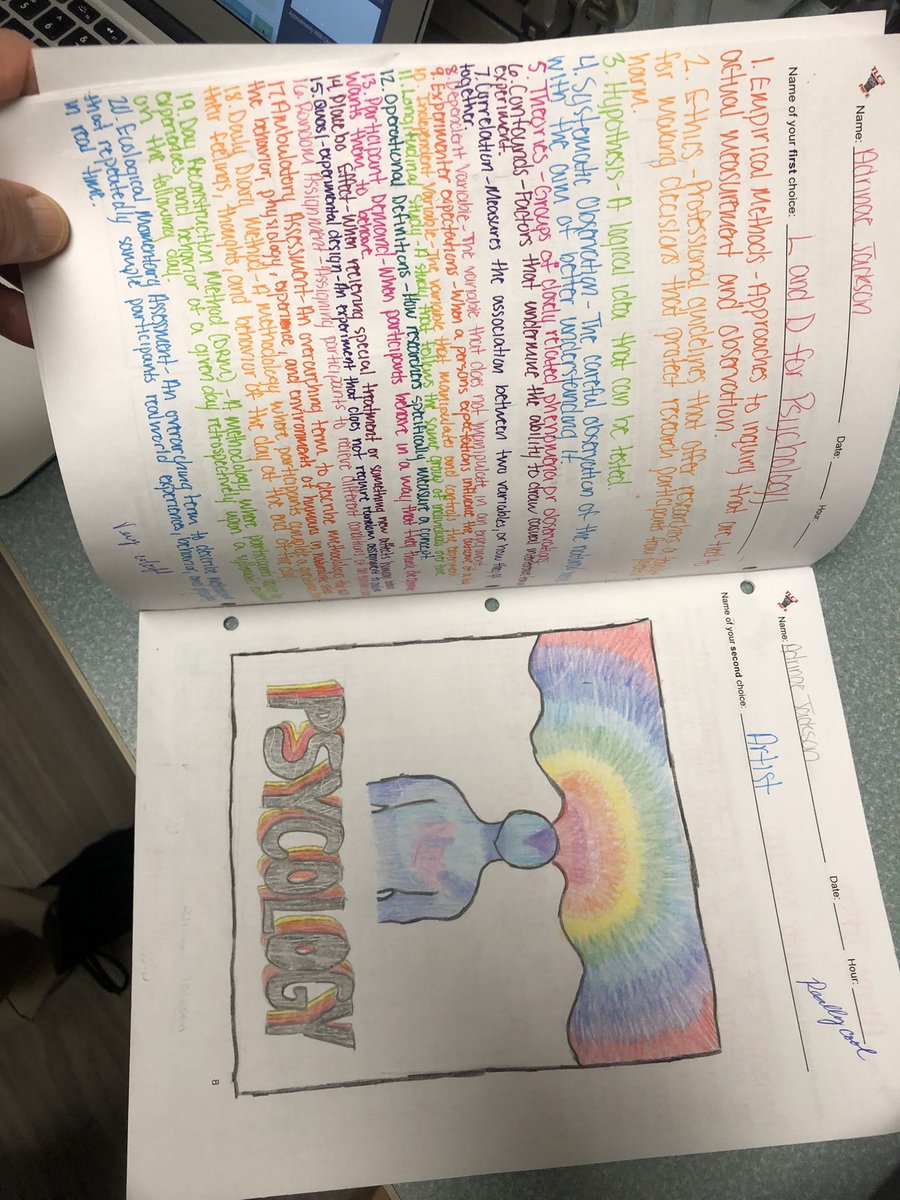 Name: Adrinne Jackson Date: Hour:
Name of your first choice: L and D for Psychology
1. Empirical Methods - Approaches to inquiry that are tied
actual measurement and observation.
2. Ethics - Professional guidelines that offer researchers a
for making decisions that protect research participants from
harm.
3. Hypothesis - A logical idea that can be tested
4. Systematic Observation - The careful observation of the natural
with the aim of better understanding it.
5. Theories - Groups of closely related phenomena or observations.
6. Confounds - Factors that undermine the ability to draw causal
experiment.
7. Correlation - Measures the association between two variables, or how they
together.
8. Dependent Variable - The variable that does not manipulate in an experiment
9. Experimenter expectations - When a persons expectations influence the outcome
10. Independent Variable - The variable that manipulate and controls
11. Longitudinal Study - A study that follows the same group of individuals over time
12. Operational Definitions - How researchers specifically measure a concept
13. Participant Demand - When participants behave in a way that they think the
wants them to behave.
14. Placebo Effect - When recieving special treatment or something new affects
15. Quasi-experimental design - An experiment that does not require random assignment
16. Random Assignment - Assigning participants to recieve different conditions
17. Ambulatory Assessment - An overarching term to describe methodologies
the behavior, physiology, experience, and environments of humans in
18. Daily Diary Method - A methodology where participants complete a
their feelings, thoughts, and behavior of the day at the end of the
19. Day Reconstruction Method (DRM) - A methodology where participants
experiences and behavior of a given day retrospectively upon a
on the following day.
20. Ecological Momentary Assessment - An overarching term to describe
that repeatedly sample participants realworld experiences, behavior
in real time.
Name: Adrinne Jackson Date: Hour:
Really cool
Name of your second choice: Artist
PSYCOLOGY
8